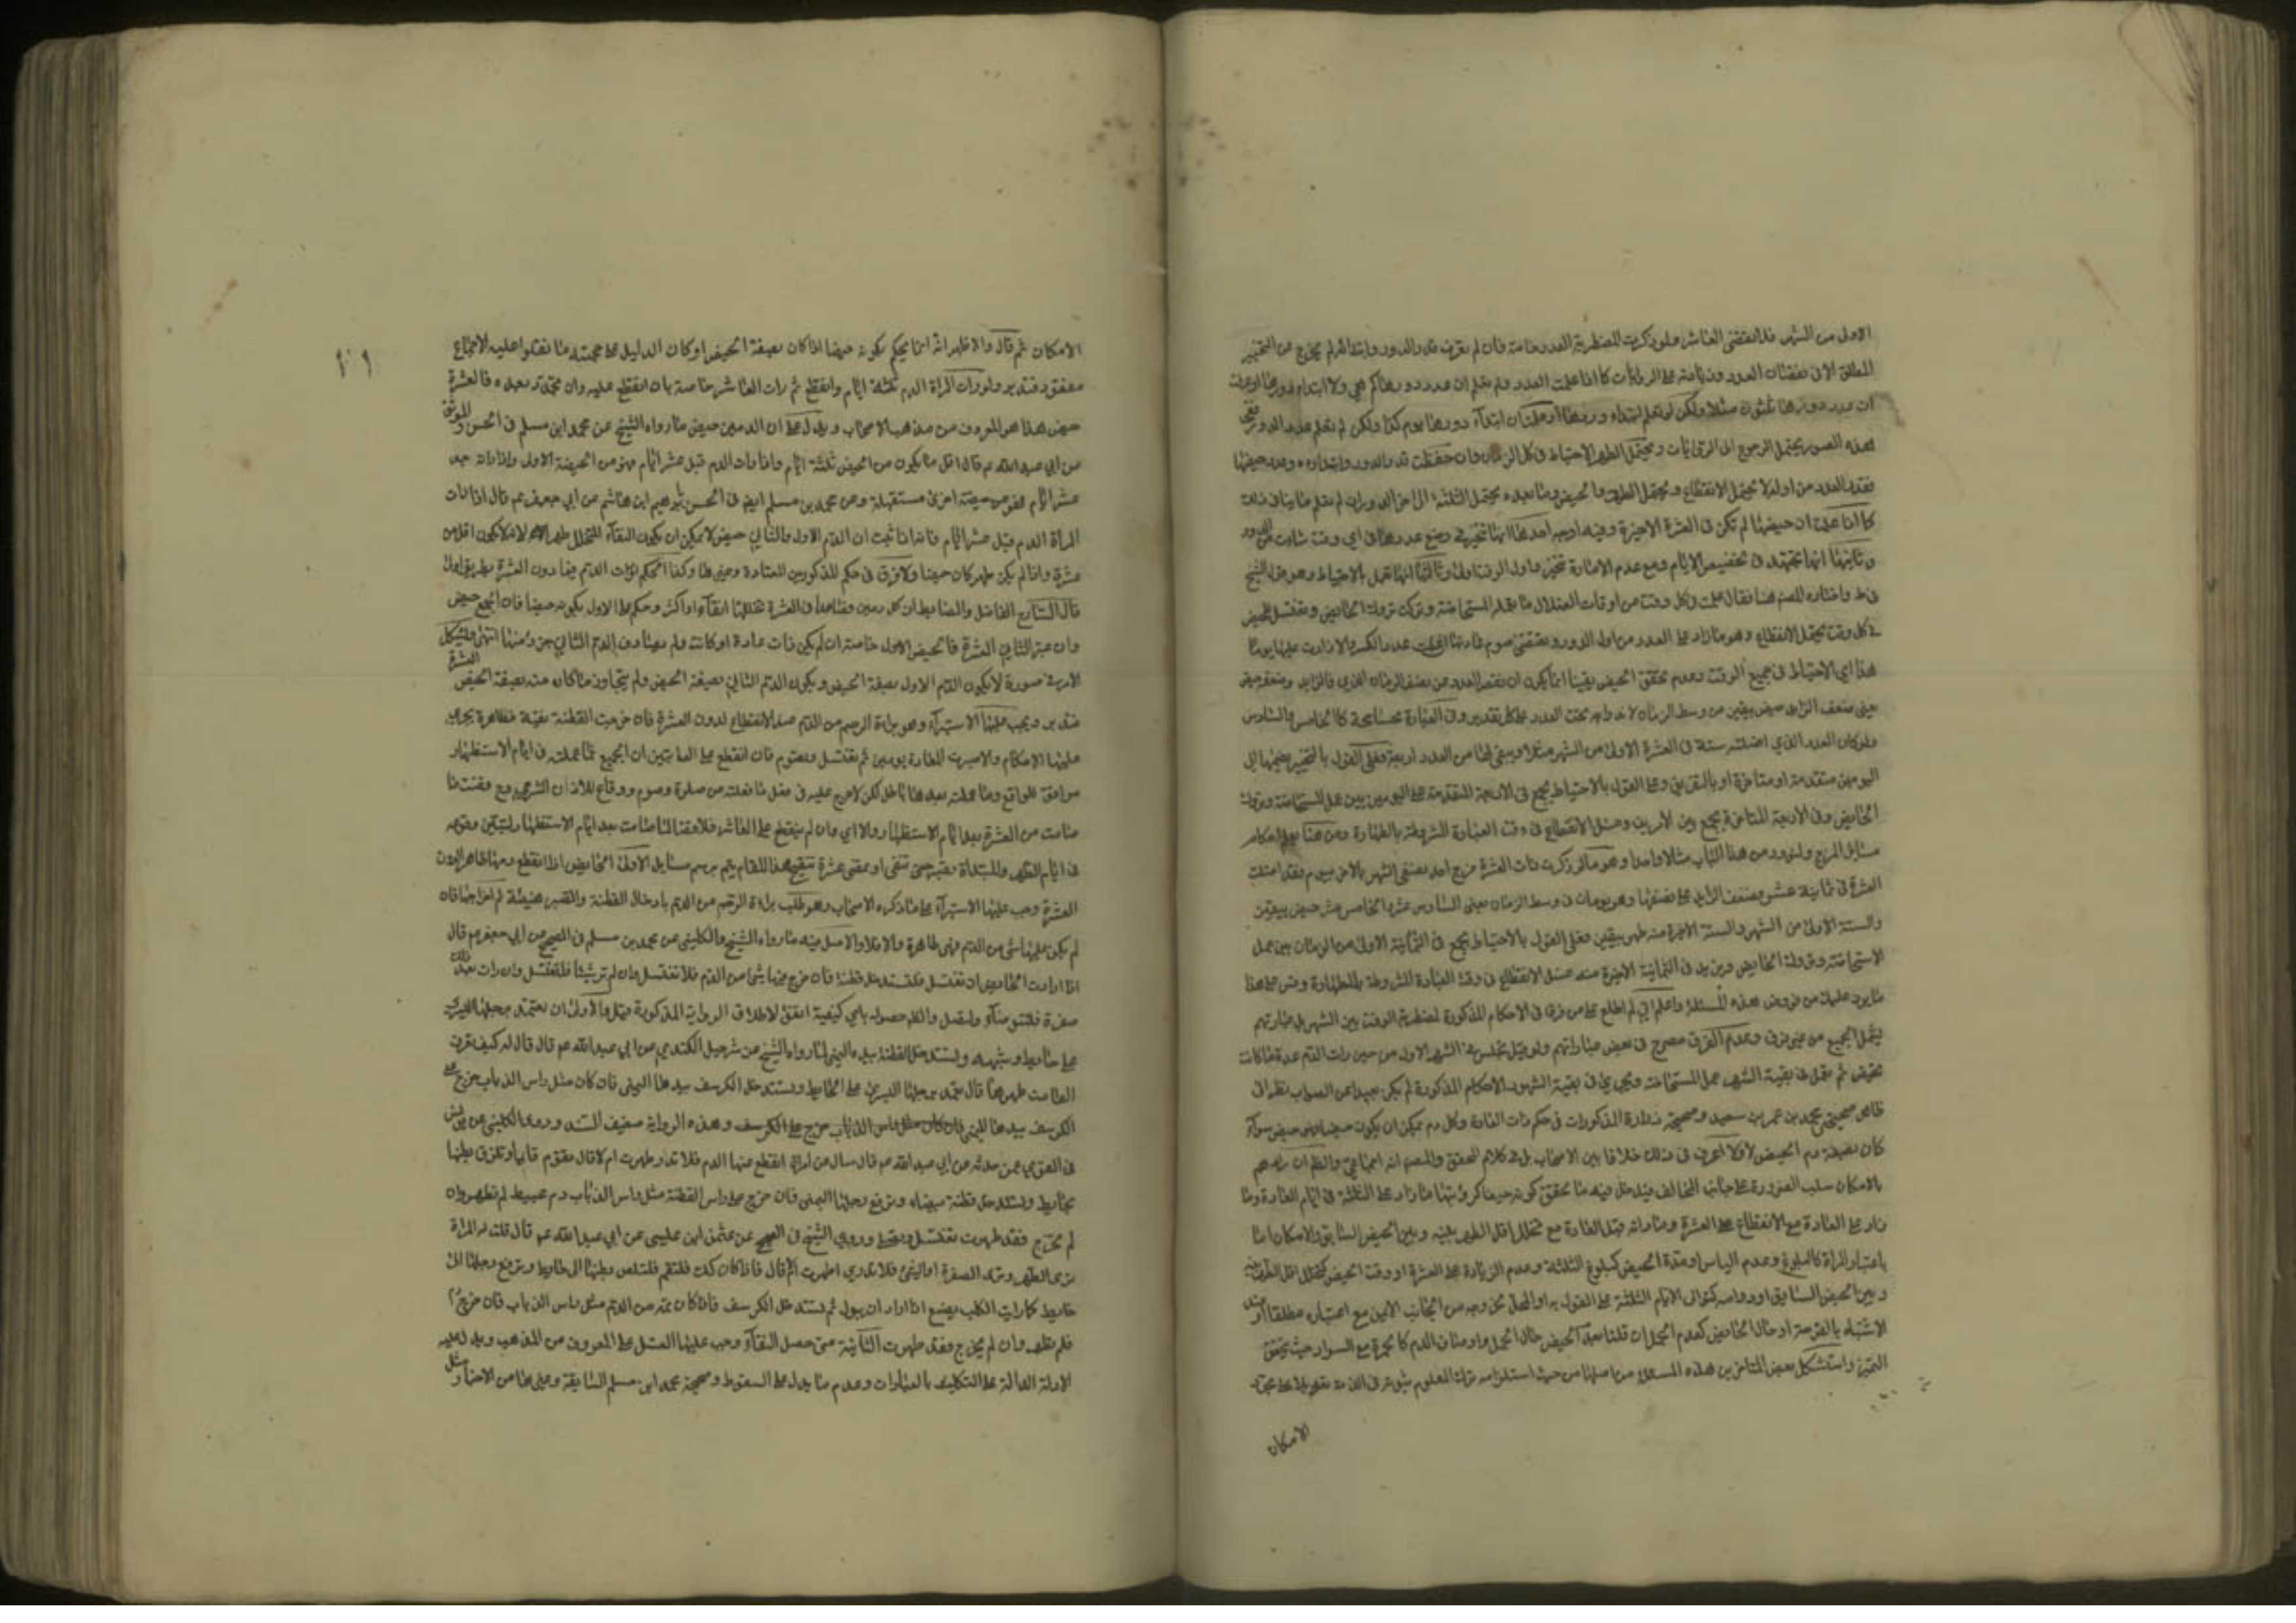 الاول من الشهر فلا تقتضى العاشر ولو ذكرت المضطربة العدد خاصة فان لم تعرف قدر الدور وابتدائه لم يخرج عن التحير
المطلق الا فى نقصان العدد وزيادته على الروايات كما اذا علمت العدد ولم تعلم ان عدد دورها كم هي ولا ابتداء دورها او علمت
ان عدد دورها ثلثون مثلا ولكن لم تعلم ابتداء دورها او علمت ان ابتداء دورها يوم كذا ولكن لم تعلم عدد الدور ففى
هذه الصور يحتمل الرجوع الى الروايات ويحتمل الاحتياط فى كل الزمان وان حفظت قدر الدور وابتداءه وعدد حيضها
فقدر العدد من اوله لا يحتمل الانقطاع ويحتمل الطهر والحيض وما بعده يحتمل الثلثة الى اخر الدور ان لم تعلم ما ينافى ذلك
كما اذا علمت ان حيضها لم تكن فى العشرة الاخيرة وفيه اوجه احدها انها تتخير فى وضع عددها فى اي وقت شاءت من الدور
وثانيها انها تجتهد فى تخصيص الايام ومع عدم الامارة تتخير واول الوقت اولى وثالثها انها تعمل بالاحتياط وهو الشيخ
فى ط واختاره المصنف هنا فقال عملت فى كل وقت من اوقات ما تعمله المستحاضة وتركت تروك الحائض وتغتسل للحيض
فى كل وقت يحتمل الانقطاع وهو ما زاد على العدد من اول الدور وتقضى صوم عادتها
هذا اي الاحتياط فى جميع الوقت وعدم تحقق الحيض يقينا انما يكون ان نقص العدد عن نصف الزمان الذي
يعنى ضعف الزايد حيض بيقين من وسط الزمان لاندراجه تحت العدد على كل تقدير وفى العبارة مسامحة كالخامس والسادس
ولو كان العدد الذي اضلته ستة فى العشرة الاولى من الشهر مثلا ويبقى لها من العدد اربعة فعلى القول بالتخيير يضمها الى
اليومين متقدمة او متاخرة او بالتفريق وعلى القول بالاحتياط يجمع فى الاربعة المتقدمة على اليومين بين عمل المستحاضة وتروك
الحائض وفى الاربعة المتاخرة يجمع بين الامرين وغسل الانقطاع فى وقت العبادة المشروطة بالطهارة ومن هنا يعلم احكام
مسايل المزج ولنورد من هذا الباب مثالا واحدا وهو ما لو ذكرت ذات العشرة مزج احد نصفى الشهر بالاخر بيوم فقد اضلت
العشرة فى ثمانية عشر وضعف الزايد على نصفها وهو يومان فى وسط الزمان يعنى السادس عشر والخامس عشر حيض بيقين
والستة الاولى من الشهر والستة الاخيرة منه طهر بيقين فعلى القول بالاحتياط يجمع فى الثمانية الاولى من الزمان بين عمل
الاستحاضة وتروك الحائض ويزيد فى الثمانية الاخيرة منه غسل الانقطاع فى وقت العبادة المشروطة بالطهارة وقس على هذا
ما يرد عليك من فروض هذه المسئلة واعلم اني لم اطلع على من فرق فى الاحكام المذكورة لمضطربة الوقت بين الشهر بل عبارتهم
يشمل الجميع من غير فرق وعدم الفرق مصرح فى بعض عباراتهم ولو قيل تجلس فى الشهر الاول من حين رات الدم عدة ما كانت
تحيض ثم تعمل فى بقية الشهر عمل المستحاضة وتجري فى بقية الشهور الاحكام المذكورة لم يكن بعيدا عن الصواب نظرا الى
ظاهر صحيحتى محمد بن عمر بن سعيد وصحيحة زرارة المذكورات فى حكم ذات العادة وكل دم يمكن ان يكون حيضا فهو حيض سواء
كان بصفة دم الحيض او لا لا اعرف فى ذلك خلافا بين الاصحاب بل فى كلام المحقق والمصنف انه اجماعي والظ ان مرادهم
بالامكان سلب الضرورة عن جانب المخالف فيدخل فيه ما تحقق كونه حيضا كرؤيتها ما زاد على الثلثة فى ايام العادة وما
زاد على العادة مع الانقطاع على العشرة وما راته قبل العادة مع تخلل اقل الطهر بينه وبين الحيض السابق والامكان اما
باعتبار المراة كالبلوغ وعدم الياس او مدة الحيض كبلوغ الثلثة وعدم الزيادة على العشرة او وقت الحيض كتخلل اقل الطهر بينه
وبين الحيض السابق او دوامه كتوالى الايام الثلثة على القول به او المحل كخروجه من الجانب الايمن مع اعتباره مطلقا او عند
الاشتباه بالقرحة او حال الحائض كعدم الحمل ان قلنا بعدم الحيض حال الحمل او اوصاف الدم كالحمرة مع السواد حيث يتحقق
التميز واستشكل بعض المتاخرين هذه المسئلة من اصلها من حيث استلزامه ترك المعلوم ثبوته فى الذمة تعويلا على مجرد
الامكان
الامكان ثم قال والاظهر انه انما يحكم بكونه حيضا اذا كان بصفة الحيض او كان الدليل على حيضيته ما نقلوا عليه الاجماع
مفقود فتدبر ولو رات المراة الدم ثلثة ايام وانقطع ثم رات العاشر خاصة بان انقطع عليه وان تجدد بعده فالعشرة
حيض هذا هو المعروف من مذهب الاصحاب ويدل على ان الدمين حيض ما رواه الشيخ عن محمد ابن مسلم فى الحسن والموثق
عن ابي عبد الله عم قال اقل ما يكون من الحيض ثلثة ايام واذا رات الدم قبل عشر ايام فهو من الحيضة الاولى واذا راته بعد
عشر ايام فهو من حيضة اخرى مستقبلة وعن محمد بن مسلم ايض فى الحسن بابرهيم ابن هاشم عن ابي جعفر عم قال اذا رات
المراة الدم قبل عشر ايام فاذا ثبت ان الدم الاول والثاني حيض لا يمكن ان يكون النقاء المتخلل طهرا لانه لا يكون اقل من
عشرة واذا لم يكن طهرا كان حيضا ولا فرق فى حكم المذكور بين المعتادة وغيرها وكذا الحكم لو رات الدم فيما دون العشرة بطريق اولى
قال الشارح الفاضل والضابط ان كل دمين فصاعدا فى العشرة تخللها نقاء او اكثر وحكم على الاول بكونه حيضا فان الجميع حيض
وان عبر الثاني العشرة فالحيض الاول خاصة ان لم يكن ذات عادة او كانت ولم يصادف الدم الثاني جزءا منها انتهى ويشكل
الامر فى صورة لا يكون الدم الاول بصفة الحيض ويكون الدم الثاني بصفة الحيض ولم يتجاوز ما كان منه بصفة الحيض العشرة
فتدبر ويجب عليها الاستبراء وهو براءة الرحم من الدم عند الانقطاع لدون العشرة فان خرجت القطنة نقية فطاهرة يجري
عليها الاحكام والا صبرت المعتادة يومين ثم تغتسل وتصوم فان انقطع على العاشر تبين ان الجميع مما عملته فى ايام الاستظهار
موافق للواقع وما عملته بعدها باطل لكن لا حرج عليه فى فعل ما فعلته من صلوة وصوم ووقاع للاذن الشرعي مع وقضت ما
صامت من العشرة بعد ايام الاستظهار والا اي وان لم ينقطع على العاشر فلا وقضاء لما صامت بعد ايام الاستظهار لتبين وقوعه
فى ايام الطهر والمبتداة تصبر حتى تنقى او تمضى عشرة تنقيح هذا المقام يتم برسم مسايل الاولى الحايض اذا انقطع دمها ظاهرا لدون
العشرة وجب عليها الاستبراء على ما ذكره الاصحاب وهو طلب براءة الرحم من الدم بادخال القطنة والصبر هنيئة ثم اخراجها فان
لم يكن عليها شئ من الدم فهى طاهرة والا فلا والاصل فيه ما رواه الشيخ والكلينى عن محمد بن مسلم فى الصحيح عن ابي جعفر عم قال
اذا ارادت الحايض ان تغتسل فلتستدخل قطنة فان خرج فيها شئ من الدم فلا تغتسل وان لم تر شيئا فلتغتسل وان رات بعد ذلك
صفرة فلتتوضأ ولتصل والظ حصوله باي كيفية اتفق لاطلاق الرواية المذكورة وقيل والاولى ان تعتمد برجلها اليسرى
على حايط او شبهه وتستدخل القطنة بيده اليمنى لما رواه الشيخ عن شرحبيل الكندي عن ابي عبد الله عم قال قال له كيف تعرف
الطامث طهرها قال تعمد برجلها اليسرى على الحايط وتستدخل الكرسف بيدها اليمنى فان كان مثل راس الذباب خرج على
الكرسف بيدها اليمنى فان كان مثل راس الذباب خرج على الكرسف وهذه الرواية ضعيف السند وروى الكلينى عن يونس
فى القوي عمن حدثه عن ابي عبد الله عم قال سال عن امراة انقطع عنها الدم فلا تدر طهرت ام لا قال تقوم قايما وتلزق بطنها
بحايط وتستدخل قطنة بيضاء وترفع رجلها اليمنى فان خرج على راس القطنة مثل راس الذباب دم عبيط لم تطهر وان
لم يخرج فقد طهرت تغتسل وتصلى وروى الشيخ فى الصحيح عن عثمن ابن عليسى عن ابي عبد الله عم قال قلت له المراة
ترى الطهر وترى الصفرة او الشئ فلا تدري اطهرت ام لا قال فاذا كان كك فلتقم فلتلصق بطنها الى حايط وترفع رجلها الى
حايط كما رايت الكلب يصنع اذا اراد ان يبول ثم تستدخل الكرسف فاذا كان ثمة من الدم مثل راس الذباب فان خرج دم
فلم تطهر وان لم يخرج فقد طهرت الثانية متى حصل النقاء وجب عليها الغسل على المعروف من المذهب ويدل عليه
الادلة الدالة على التكليف بالعبادات وعدم ما يدل على السقوط وصحيحة محمد ابن مسلم السابقة وغيرها من الاخبار مثل